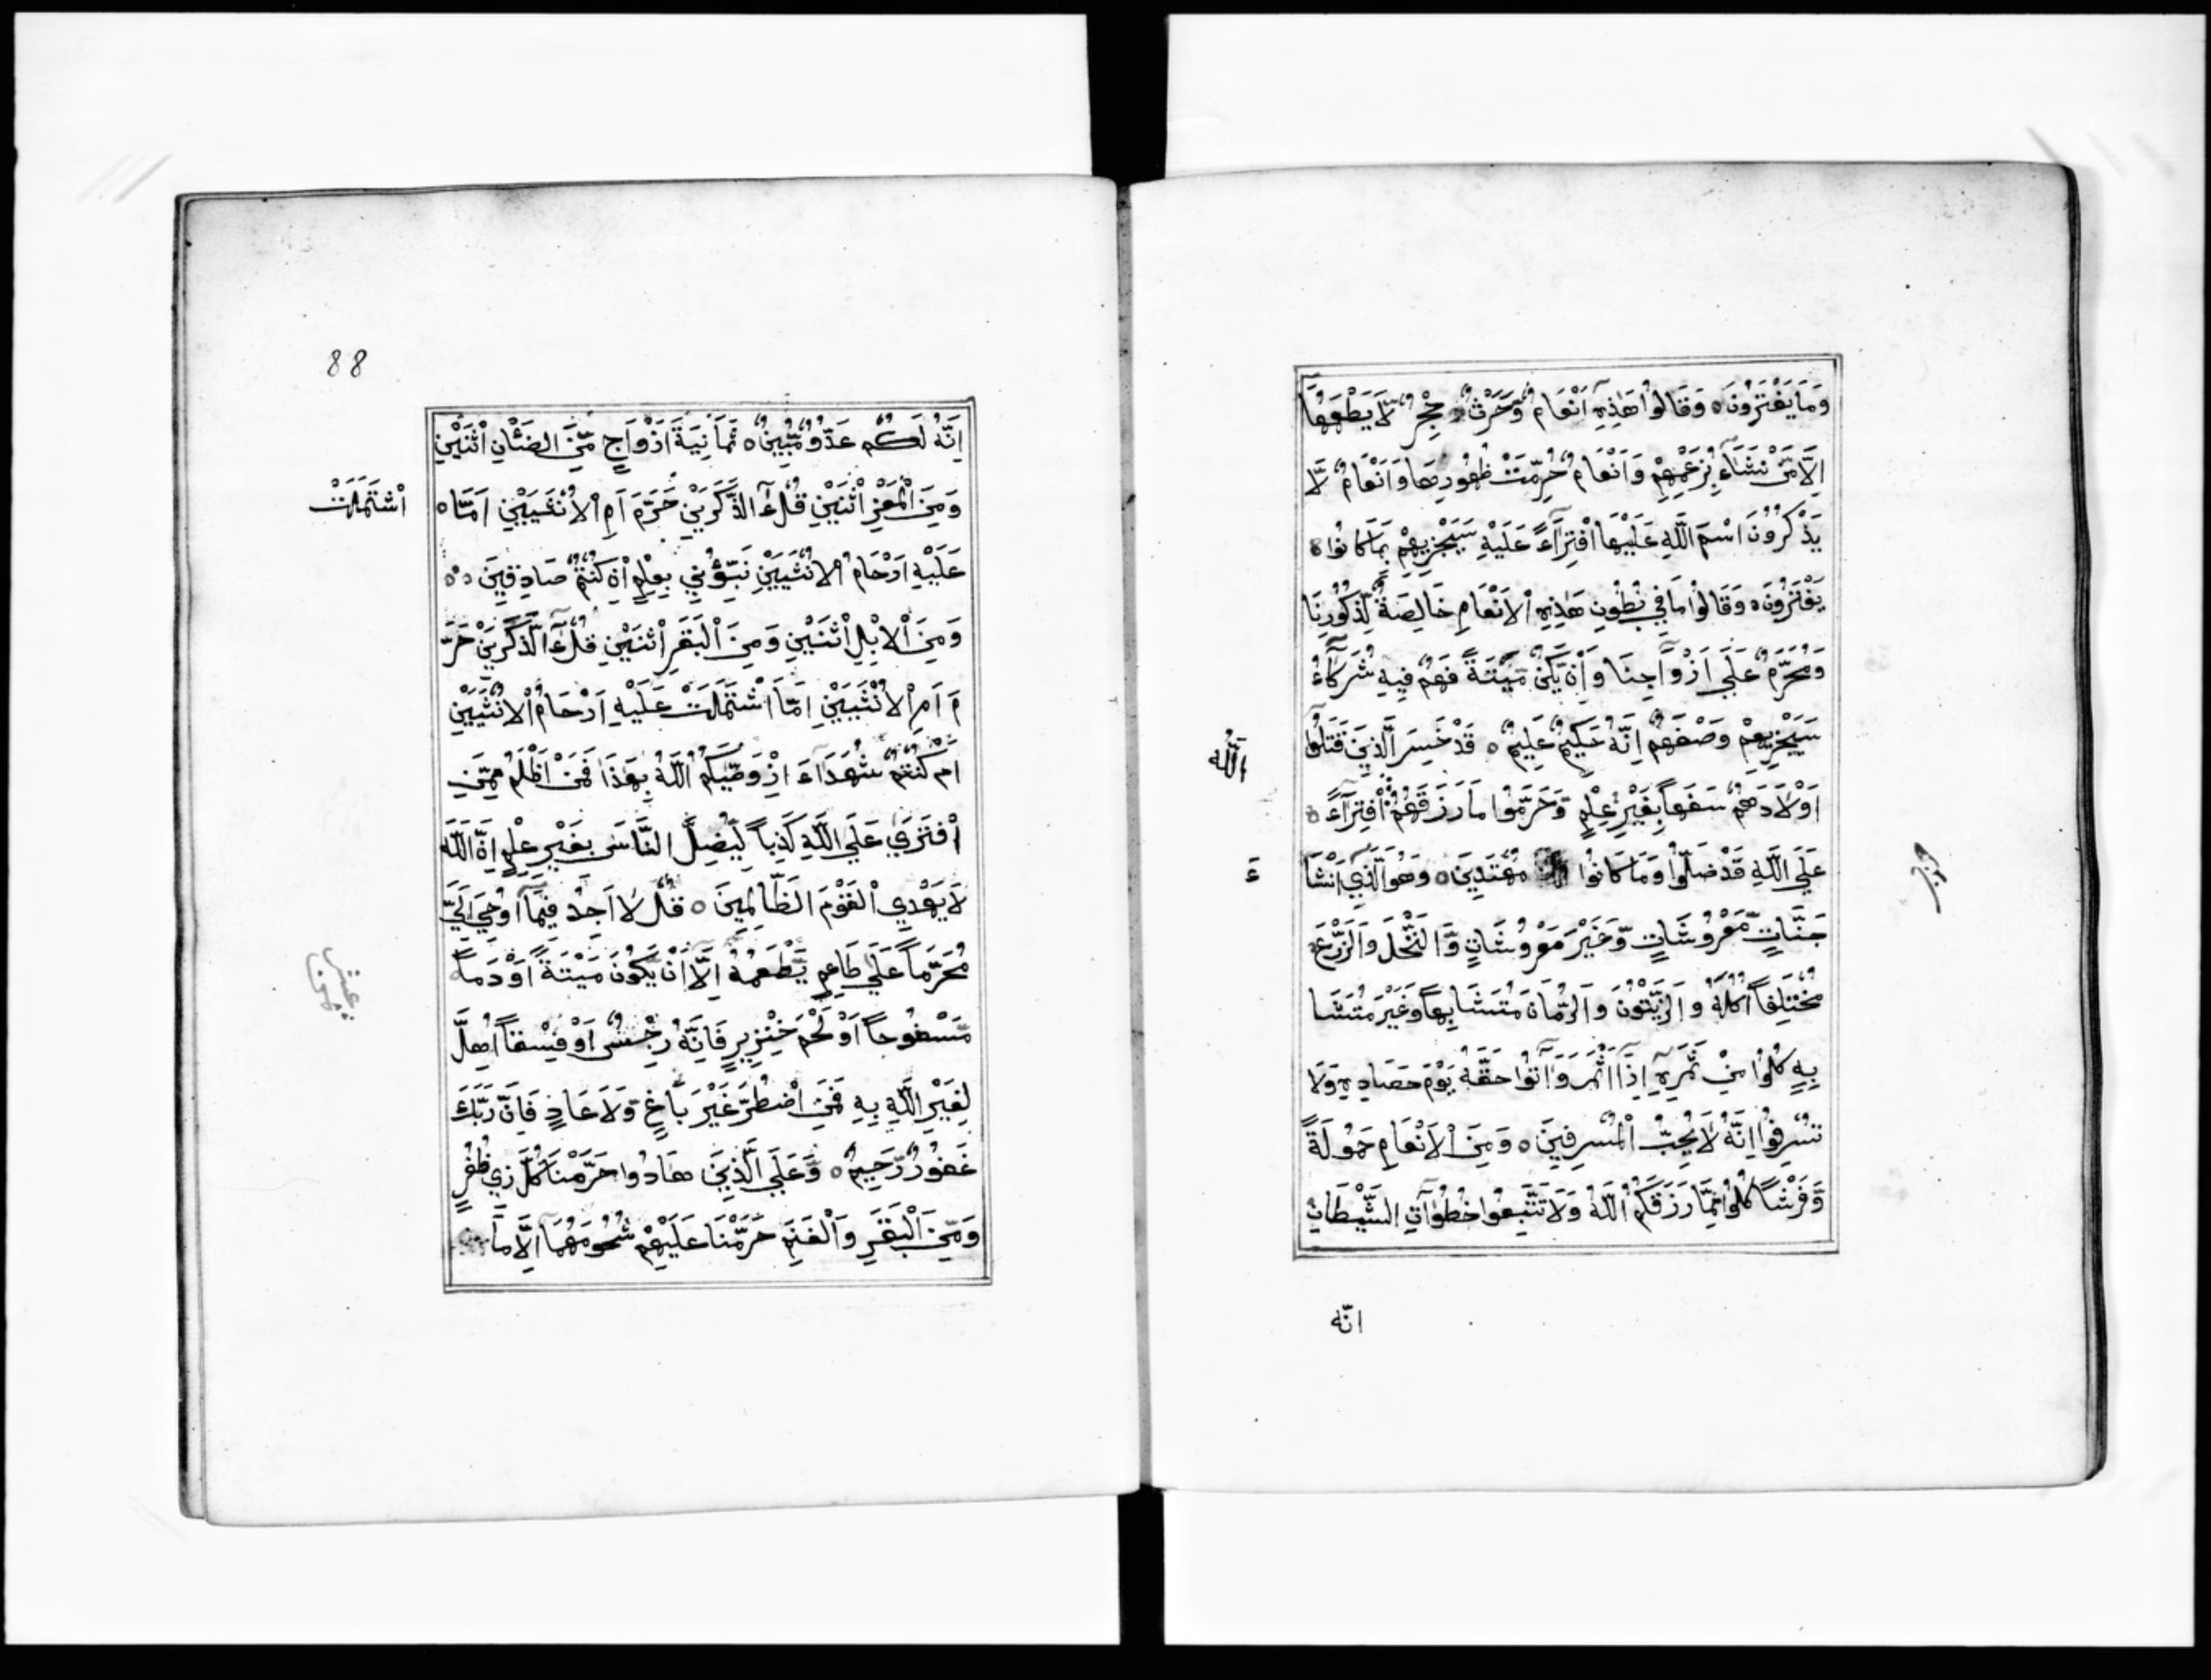 وَمَا يَفْتَرُونَ ٥ وَقَالُوا هَذِهِ اَنْعَامٌ وَّحَرْثٌ حِجْرٌ لَّا يَطْعَمُهَا
اِلَّا مَنْ نَشَاءُ بِزَعْمِهِمْ وَاَنْعَامٌ حُرِّمَتْ ظُهُورُهَا وَاَنْعَامٌ لَّا
يَذْكُرُونَ اسْمَ اللَّهِ عَلَيْهَا افْتِرَاءً عَلَيْهِ سَيَجْزِيهِمْ بِمَا كَانُوا ٥
يَفْتَرُونَ ٥ وَقَالُوا مَا فِي بُطُونِ هَذِهِ الْاَنْعَامِ خَالِصَةٌ لِّذُكُورِنَا
وَمُحَرَّمٌ عَلَي اَزْوَاجِنَا وَاِنْ يَّكُنْ مَّيْتَةً فَهُمْ فِيهِ شُرَكَاءُ
سَيَجْزِيهِمْ وَصْفَهُمْ اِنَّهُ حَكِيمٌ عَلِيمٌ ٥ قَدْ خَسِرَ الَّذِينَ قَتَلُوا
اَوْلَادَهُمْ سَفَهاً بِغَيْرِ عِلْمٍ وَّحَرَّمُوا مَا رَزَقَهُمُ افْتِرَاءً ٥
اللّٰه
عَلَي اللَّهِ قَدْ ضَلُّوا وَمَا كَانُوا مُهْتَدِينَ ٥ وَهُوَ الَّذِي اَنْشَا
ءَ
جَنَّاتٍ مَّعْرُوشَاتٍ وَّغَيْرَ مَعْرُوشَاتٍ وَّالنَّخْلَ وَالزَّرْعَ
مُخْتَلِفاً اُكُلُهُ وَالزَّيْتُونَ وَالرُّمَّانَ مُتَشَابِهاً وَّغَيْرَ مُتَشَا
بِهٍ كُلُوا مِنْ ثَمَرِهِ اِذَا اَثْمَرَ وَآتُوا حَقَّهُ يَوْمَ حَصَادِهِ وَلَا
تُسْرِفُوا اِنَّهُ لَا يُحِبُّ الْمُسْرِفِينَ ٥ وَمِنَ الْاَنْعَامِ حَمُولَةً
وَّفَرْشاً كُلُوا مِمَّا رَزَقَكُمُ اللَّهُ وَلَا تَتَّبِعُوا خُطُوَاتِ الشَّيْطَانِ
انّه
88
اِنَّهُ لَكُمْ عَدُوٌّ مُّبِينٌ ٥ ثَمَانِيَةَ اَزْوَاجٍ مِّنَ الضَّئْانِ اثْنَيْنِ
وَمِنَ الْمَعْزِ اثْنَيْنِ قُلْ ءَالذَّكَرَيْنِ حَرَّمَ اَمِ الْاُنْثَيَيْنِ اَمَّا ٥
اشْتَمَلَتْ
عَلَيْهِ اَرْحَامُ الْاُنْثَيَيْنِ نَبِّؤُنِي بِعِلْمٍ اِنْ كُنْتُمْ صَادِقِينَ ٥ ٥
وَمِنَ الْاِبِلِ اثْنَيْنِ وَمِنَ الْبَقَرِ اثْنَيْنِ قُلْ ءَآلذَّكَرَيْنِ حَرَّ
مَ اَمِ الْاُنْثَيَيْنِ اَمَّا اشْتَمَلَتْ عَلَيْهِ اَرْحَامُ الْاُنْثَيَيْنِ
اَمْ كُنْتُمْ شُهَدَاءَ اِذْ وَصّٰيكُمُ اللَّهُ بِهَذَا فَمَنْ اَظْلَمُ مِمَّنِ
افْتَرَي عَلَي اللَّهِ كَذِباً لِّيُضِلَّ النَّاسَ بِغَيْرِ عِلْمٍ اِنَّ اللَّهَ
لَا يَهْدِي الْقَوْمَ الظَّالِمِينَ ٥ قُلْ لَا اَجِدُ فِيمَا اُوحِيَ اِلَيَّ
مُحَرَّماً عَلَي طَاعِمٍ يَّطْعَمُهُ اِلَّا اَنْ يَّكُونَ مَيْتَةً اَوْ دَماً
مَّسْفُوحاً اَوْ لَحْمَ خِنْزِيرٍ فَاِنَّهُ رِجْسٌ اَوْ فِسْقاً اُهِلَّ
لِغَيْرِ اللَّهِ بِهِ فَمَنِ اضْطُرَّ غَيْرَ بَاغٍ وَّلَا عَادٍ فَاِنَّ رَبَّكَ
غَفُورٌ رَّحِيمٌ ٥ وَّعَلَي الَّذِينَ هَادُوا حَرَّمْنَا كُلَّ ذِي ظُفُرٍ
وَمِنَ الْبَقَرِ وَالْغَنَمِ حَرَّمْنَا عَلَيْهِمْ شُحُومَهُمَا اِلَّا مَا